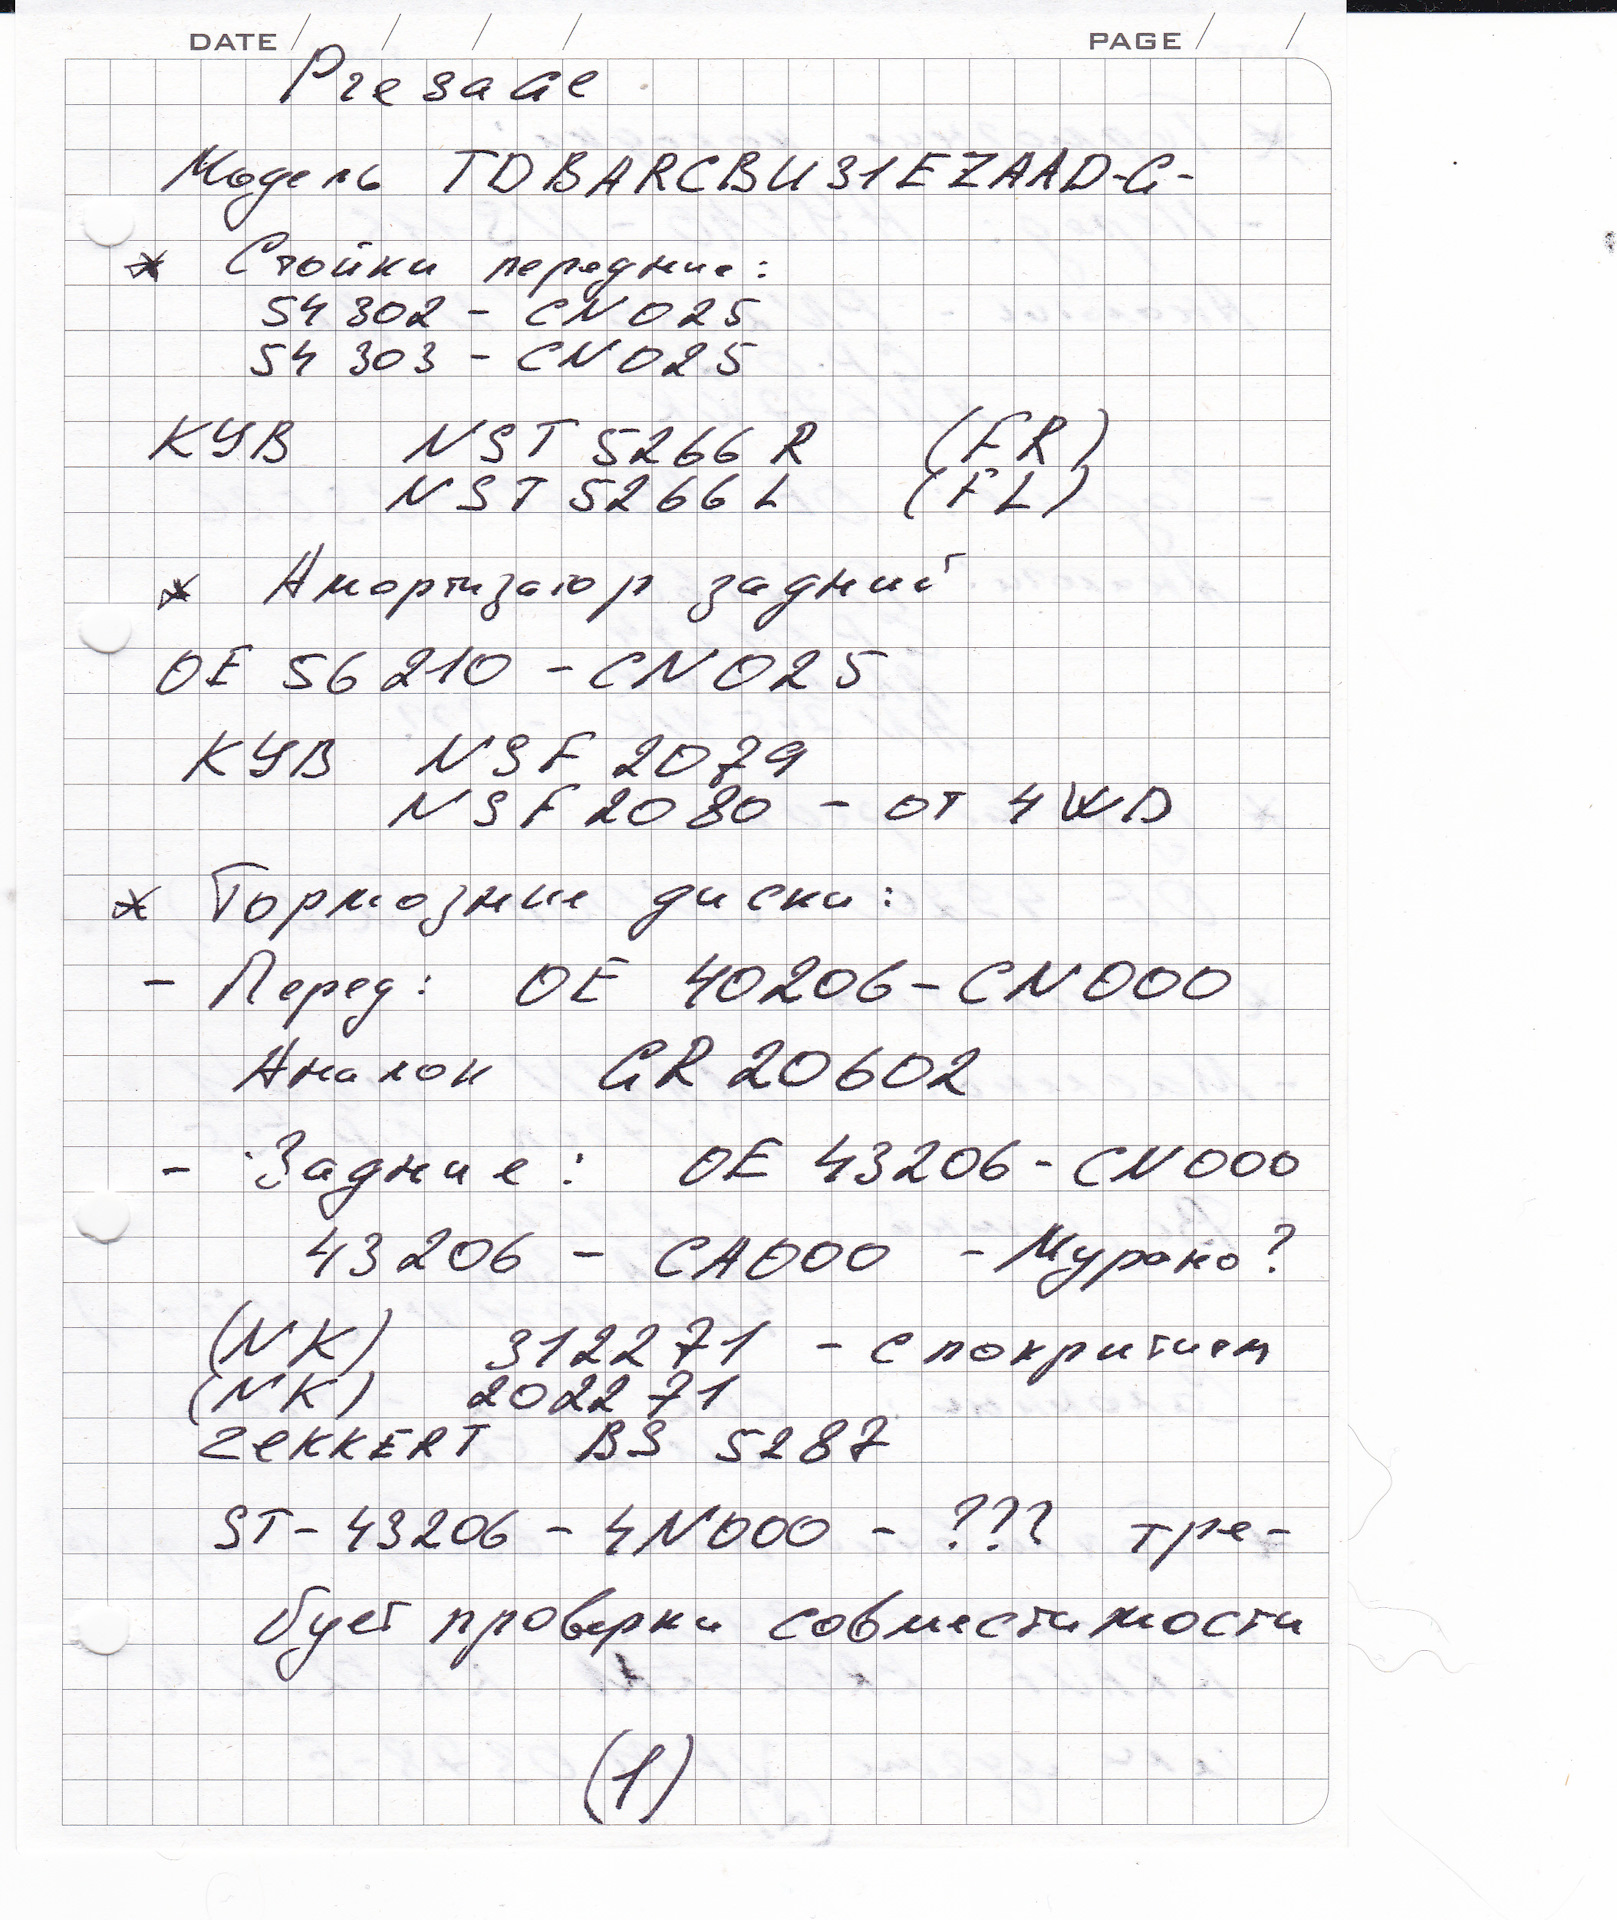 DATE / / / /
PAGE / /
Presage
Модель TDBARCBU31EZAAD-G-
* Стойки передние:
54302 - CN025
54303 - CN025
KYB NST 5266 R (FR)
NST 5266 L (FL)
* Амортизатор задний
OE 56210 - CN025
KYB NSF 2079
NSF 2080 - от 4WD
* Тормозные диски:
- Перед: OE 40206 - CN000
Аналог GR 20602
- Задние: OE 43206 - CN000
43206 - CA000 - Мурано?
(NK) 312271 - с покрытием
(NK) 202271
ZEKKERT BS 5287
ST - 43206 - 4N000 - ??? тре-
бует проверки совместимости
(1)